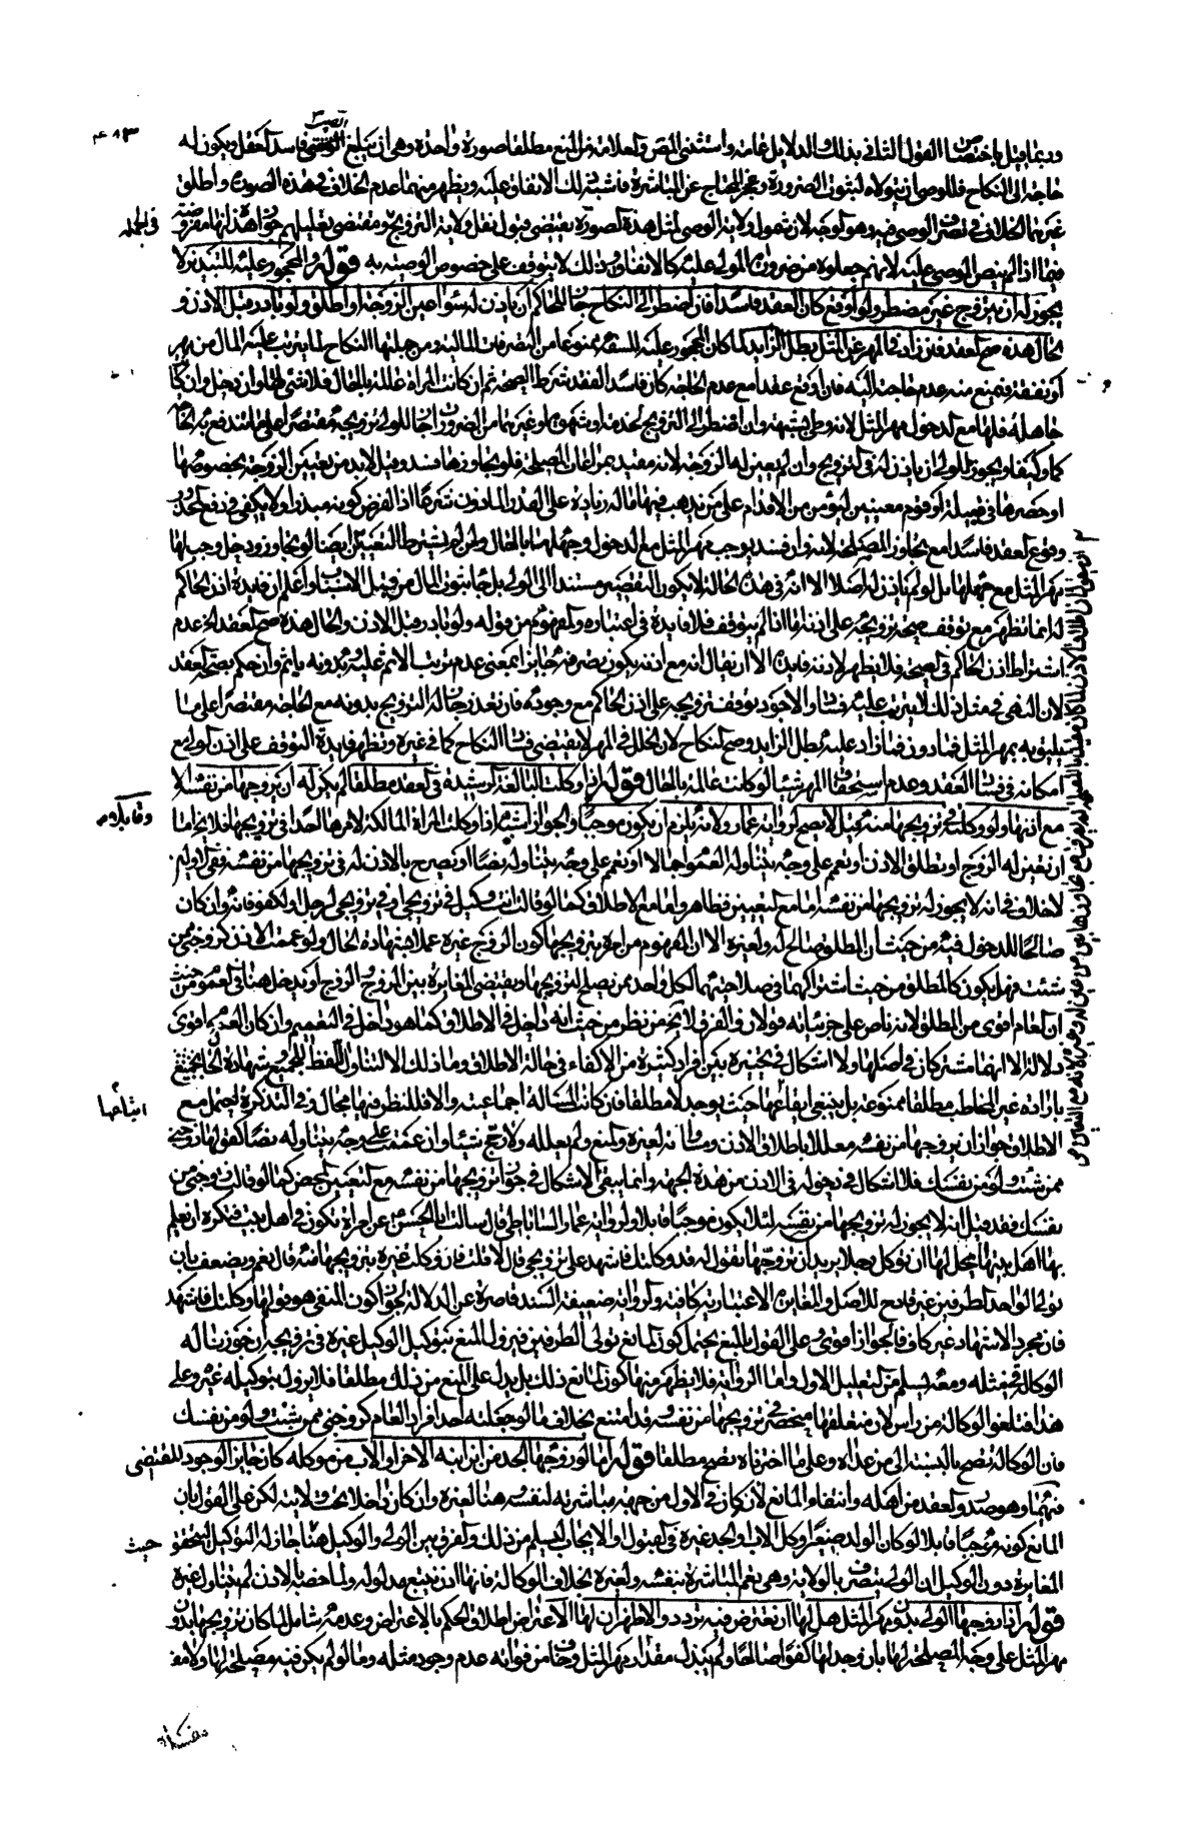 وربما قيل باختصاص القول الثاني بذلك والدلايل عامة واستثنى المص والعلامة من المنع مطلقا صورة واحدة وهى ان يبلغ الصبي فاسد العقل ويكون له
حاجة الى النكاح فللوصى ان يتولاه لثبوت الضرورة وعجز المحتاج عن المباشرة فاشبه ذلك الانفاق عليه ويظهر منهما عدم الخلاف في هذه الصورة واطلق
غيرهما الخلاف في تصرف الوصى فيه وهو اوجه لان شمول ولاية الوصى لمثل هذه الصورة يقتضى قبول نقل ولاية التزويج ومقتضى تعليلهم جواز هذا انها مفروضة
فيما اذا لم ينص الموصى عليه لانهم جعلوه من ضرورات المولى عليه كالانفاق وذلك لا يتوقف على خصوص الوصية به قوله والمحجور عليه للتبذير لا
يجوز له ان يتزوج غير مضطر ولو اوقع كان العقد فاسدا فان اضطر الى النكاح جاز للحاكم ان ياذن له سواء عين الزوجة او اطلق ولو بادر قبل الاذن و
الحال هذه صح العقد فان زاد في المهر عن المثل بطل الزايد لما كان المحجور عليه للسفه ممنوعا من التصرفات المالية ومن جملتها النكاح لما يترتب عليه المال من مهر
او نفقة فيمنع منه عدم حاجته اليه فان اوقع عقدا مع عدم الحاجة كان فاسدا لفقد شرط الصحة ثم ان كانت المراة عالمة بالحال فلا شئ لها وان دخل وان كانت
جاهلة فلها مع الدخول مهر المثل لانه وطى شبهة وان اضطر الى التزويج لخدمة او شهوة او غيرهما من الضرورات جاز للولى تزويجه مقتصرا على ما تندفع به الحاجة
كما وكيفا ويجوز للولى ان ياذن له في التزويج وان لم يعين له الزوجة لانه مقيد بمراعاة المصلحة فلو تجاوزها فسد وقيل لابد من تعيين الزوجة بخصوصها
او حصرها في قبيلة او قوم معينين ليؤمن من الاقدام على من يذهب فيها ماله زيادة على القدر الماذون شرعا اذ الفرض كونه مبذرا ولا يكفى في دفع المحذور
وقوع العقد فاسدا مع تجاوز المصلحة لانه وان فسد يوجب مهر المثل مع الدخول وجهلها بالحال وان لم يشترط التعيين ايضا لو تجاوز ودخل وجب لها
مهر المثل مع جهلها بل لو لم ياذن له اصلا الا انه في هذه الحالة لا يكون التقصير مستندا الى الولى بل جاء ثبوت المال من قبل الاسباب واعلم ان فايدة اذن الحاكم
له انما تظهر مع توقف صحة تزويجه على اذنه اما اذا لم يتوقف فلا فايدة في اعتباره والمفهوم من قوله ولو بادر قبل الاذن والحال هذه صح العقد عدم
اشتراط اذن الحاكم في الصحة فلا يظهر لاذنه فايدة الا ان يقال انه مع اذنه يكون تصرفه جايزا بمعنى عدم ترتب الاثم عليه وبدونه ياثم وان حكم بصحة العقد
لان النهى في مثل ذلك لا يترتب عليه فساد والاجود توقف تزويجه على اذن الحاكم مع وجوده فان تعذر جاز له التزويج بدونه مع الحاجة مقتصرا على ما
يليق به بمهر المثل فما دون فما زاد عليه بطل الزايد وصح النكاح لان الخلل في المهر لا يقتضى فساد النكاح كما في غيره وتظهر فايدة التوقف على اذن الولى مع
امكانه في فساد العقد وعدم استحقاق المهر شيئا لو كانت عالمة بالحال قوله اذا وكلت البالغة الرشيدة في العقد مطلقا لم يكن له ان يزوجها من نفسه الا
مع اذنها ولو وكلته في تزويجها منه قيل لا يصح لرواية عمار ولانه يلزم ان يكون موجبا وقابلا والجواز اشبه اذا وكلت المراة المالكة لامرها احدا في تزويجها فلا يخ اما
ان تعين له الزوج او تطلق الاذن او تعمم على وجه يتناوله العموم اجمالا او تعمم على وجه يتناوله نصا او تصرح بالاذن له في تزويجها من نفسه ففى الاول
لا خلاف في انه لا يجوز له تزويجها من نفسه اما مع التعيين فظاهر واما مع الاطلاق كما لو قالت انت وكيل في تزويجى او في تزويجى لرجل او لكفو فانه وان كان
صالحا للدخول فيه من حيث ان المطلق صالح له ولغيره الا ان المفهوم من امره بتزويجها كون الزوج غيره عملا بشهادة الحال ولو عممت الاذن كزوجنى ممن
شئت فهل يكون كالمطلق من حيث اشتراكهما في صلاحيتهما لكل واحد ممن يصلح لتزويجها ويقتضى المغايرة بين المزوج والزوج او يدخل هنا في العموم من حيث
ان العام اقوى من المطلق لانه ناص على جزئياته قولان والفرق لا يخ من نظر من حيث انه داخل في الاطلاق كما هو داخل في التعميم وان كان العموم اقوى
دلالة الا انهما مشتركان في اصلها ولا اشكال في تخييره بين افراد كثيرة من الاكفاء في حالة الاطلاق وما ذلك الا لتناول اللفظ للجميع وشهادة الحال
بارادة غير المخاطب مطلقا ممنوعة بل ينبغى ايقاعها حيث يوجد لا مطلقا فان كانت المسالة اجماعية والا فللنظر فيها مجال وفي التذكرة احتمل مع
الاطلاق جواز ان يزوجها من نفسه معللا باطلاق الاذن ومساواته لغيره والمنع ولم يعلله ولا رجح شيئا وان عممت على وجه يتناوله نصا كقولها زوجنى
ممن شئت ولو من نفسك فلا اشكال في دخوله في الاذن من هذه الجهة وانما يبقى الاشكال في جواز تزويجها من نفسه مع التعيين المحض كما لو قالت زوجنى من
نفسك فقد قيل انه لا يجوز له تزويجها من نفسه لئلا يكون موجبا قابلا ولرواية عمار الساباطى قال سالت ابا الحسن عن امراة تكون في اهل بيت فتكره ان يعلم
بها اهل بيتها ايحل لها ان توكل رجلا يريد ان يتزوجها تقول له قد وكلتك فاشهد على تزويجى قال لا قلت فان وكلت غيره بتزويجها منه قال نعم ويضعف بان
تولى الواحد الطرفين غير قادح للاصل والمغايرة الاعتبارية كافية والرواية ضعيفة السند قاصرة عن الدلالة لجواز كون المنفى هو قولها وكلتك فاشهد
فان مجرد الاشهاد غير كاف فالجواز اقوى وعلى القول بالمنع يحتمل كون المانع تولى الطرفين فيزول المنع بتوكيل الوكيل غيره في تزويجه ان جوزنا له
الوكالة في مثله ومعه يسلم من التعليل الاول واما الرواية فلا يظهر منها كون المانع ذلك بل يدل على المنع من ذلك مطلقا فلا يزول بتوكيله غيره وعلى
هذا فتلغو الوكالة من راس لان متعلقها منحصر في تزويجها من نفسه وقد امتنع بخلاف ما لو جعلته احد افراد العام كزوجنى ممن شئت ولو من نفسك
فان الوكالة تصح بالنسبة الى من عداه وعلى ما اخترناه تصح مطلقا قوله اما لو زوجها الجد من ابن ابنه الاخر او الاب من موكله كان جايزا لوجود المقتضى
فيهما وهو صدور العقد من اهله وانتفاء المانع لان كان في الاول من جهة مباشرته لنفسه وهنا لغيره وان كان داخلا تحت ولايته لكن على القول بان
المانع كونه موجبا قابلا لو كان الولد صغيرا وكل الاب او الجد غيره في القبول او الايجاب ليسلم من ذلك والفرق بين الولى والوكيل هنا جاز له التوكيل لتحقق
المغايرة دون الوكيل ان الولى يتصرف بالولاية وهى تعم المباشرة بنفسه ولغيره بخلاف الوكالة فانها اذن يتبع مدلوله ولما خصه بالاذن لم يتناول غيره
قوله اذا زوجها الولى بدون مهر المثل هل لها ان تعترض فيه تردد والاظهر ان لها الاعتراض اطلاق الحكم بالاعتراض وعدمه شامل لما كان تزويجها بدون
مهر المثل على وجه المصلحة لها بان وجد لها كفوا صالحا ولم يبذل مقدار مهر المثل وخاف من فواته عدم وجود مثله وما لو لم يكن فيه مصلحة لها ولا مف
في الجملة
وقابلا
حيث